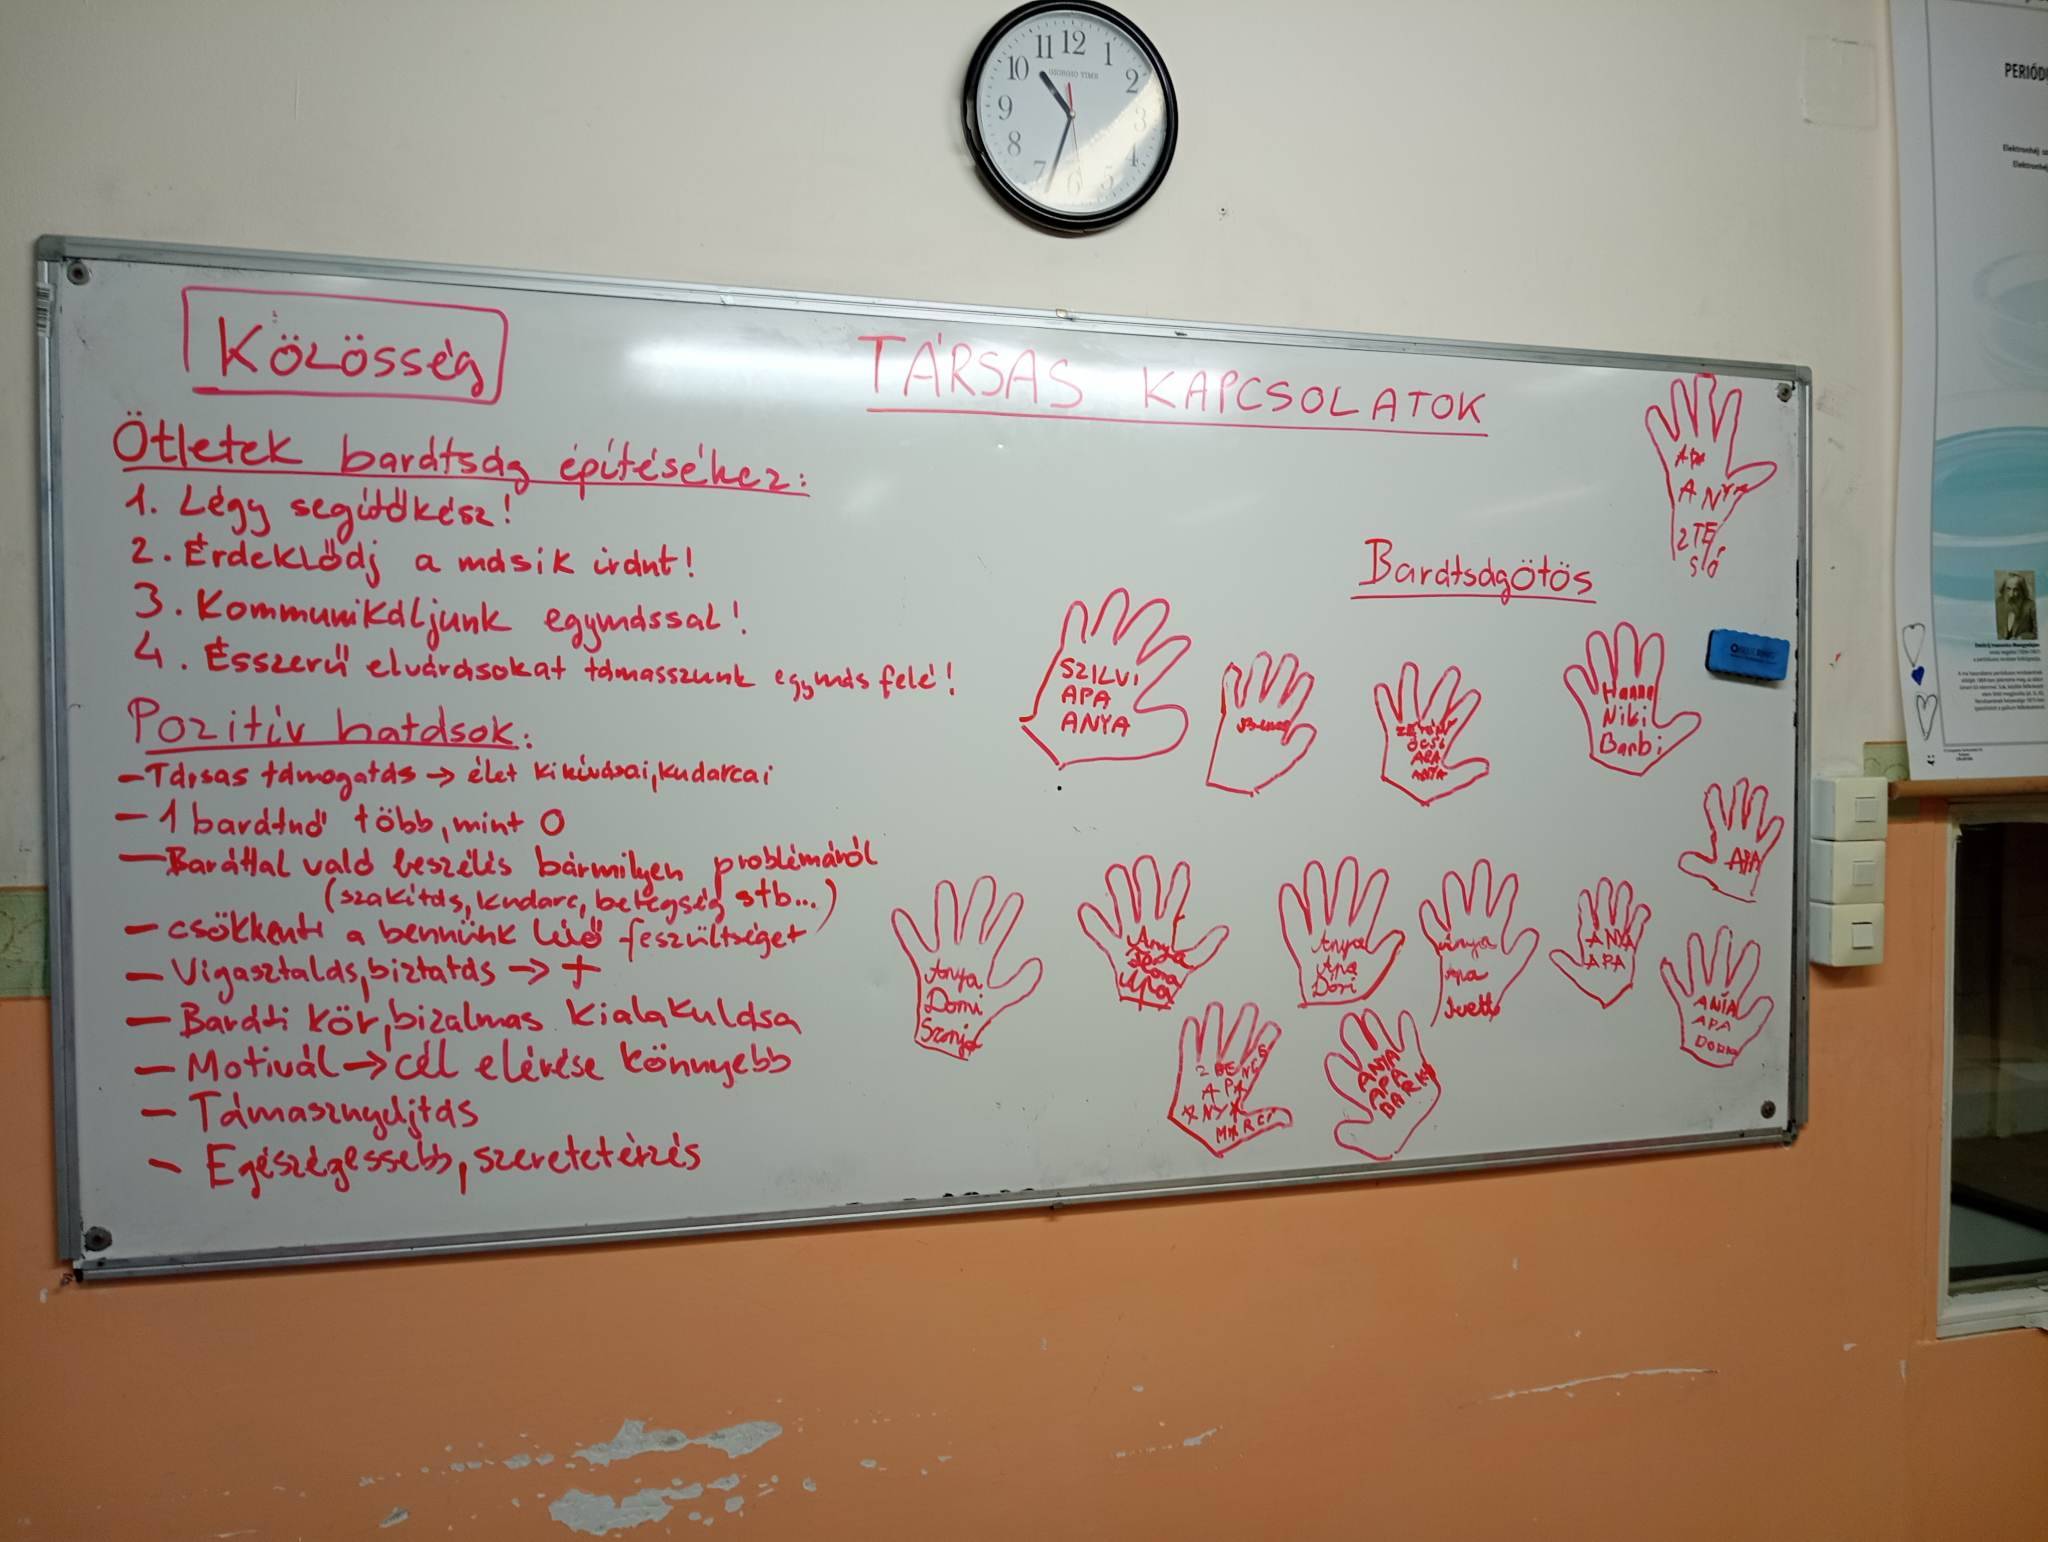 11 12 1
10 2
GIORGIO TIME
9 3
8 4
7 6 5
PERIÓDU
Elektronhéj
Elektronhéj
Közösség
TÁRSAS KAPCSOLATOK
Ötletek barátság építéséhez:
1. Légy segítőkész!
2. Érdeklődj a másik iránt!
3. Kommunikáljunk egymással!
4. Ésszerű elvárásokat támasszunk egymás felé!
Pozitív hatások:
- Társas támogatás → élet kihívásai, kudarcai
- 1 barátnő több, mint 0
- Baráttal való beszélés bármilyen problémáról
(szakítás, kudarc, betegség stb...)
- csökkenti a bennünk lévő feszültséget
- Vigasztalás, biztatás → +
- Baráti kör, bizalmas kialakulása
- Motivál → cél elérése könnyebb
- Támasznyújtás
- Egészségessebb, szeretetérzés
APA
ANYA
2 TE
SÓ
Barátságötös
SZILVI
APA
ANYA
Bence
ÖCSI
APA
ANYA
Hanna
Niki
Barbi
APA
Anya
Domi
Szonja
Anya
Ilona
Apa
Anya
Apa
Dóri
Anya
Apa
Ivett
ANYA
APA
ANYA
APA
DORKA
2 BENCE
APA
ANYA
MARCI
ANYA
APA
BARKA